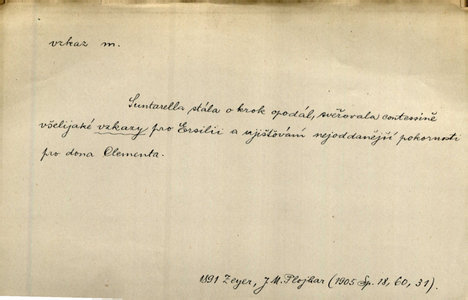 vzkaz m.
Suntarella stála o krok opodál, svěřovala contessině
všelijaké vzkazy pro Ersilii a ujišťování nejoddanější pokornosti
pro dona Clementa.
1891 Zeyer, J. M. Plojhar (1905 Sp. 18, 60, 31).